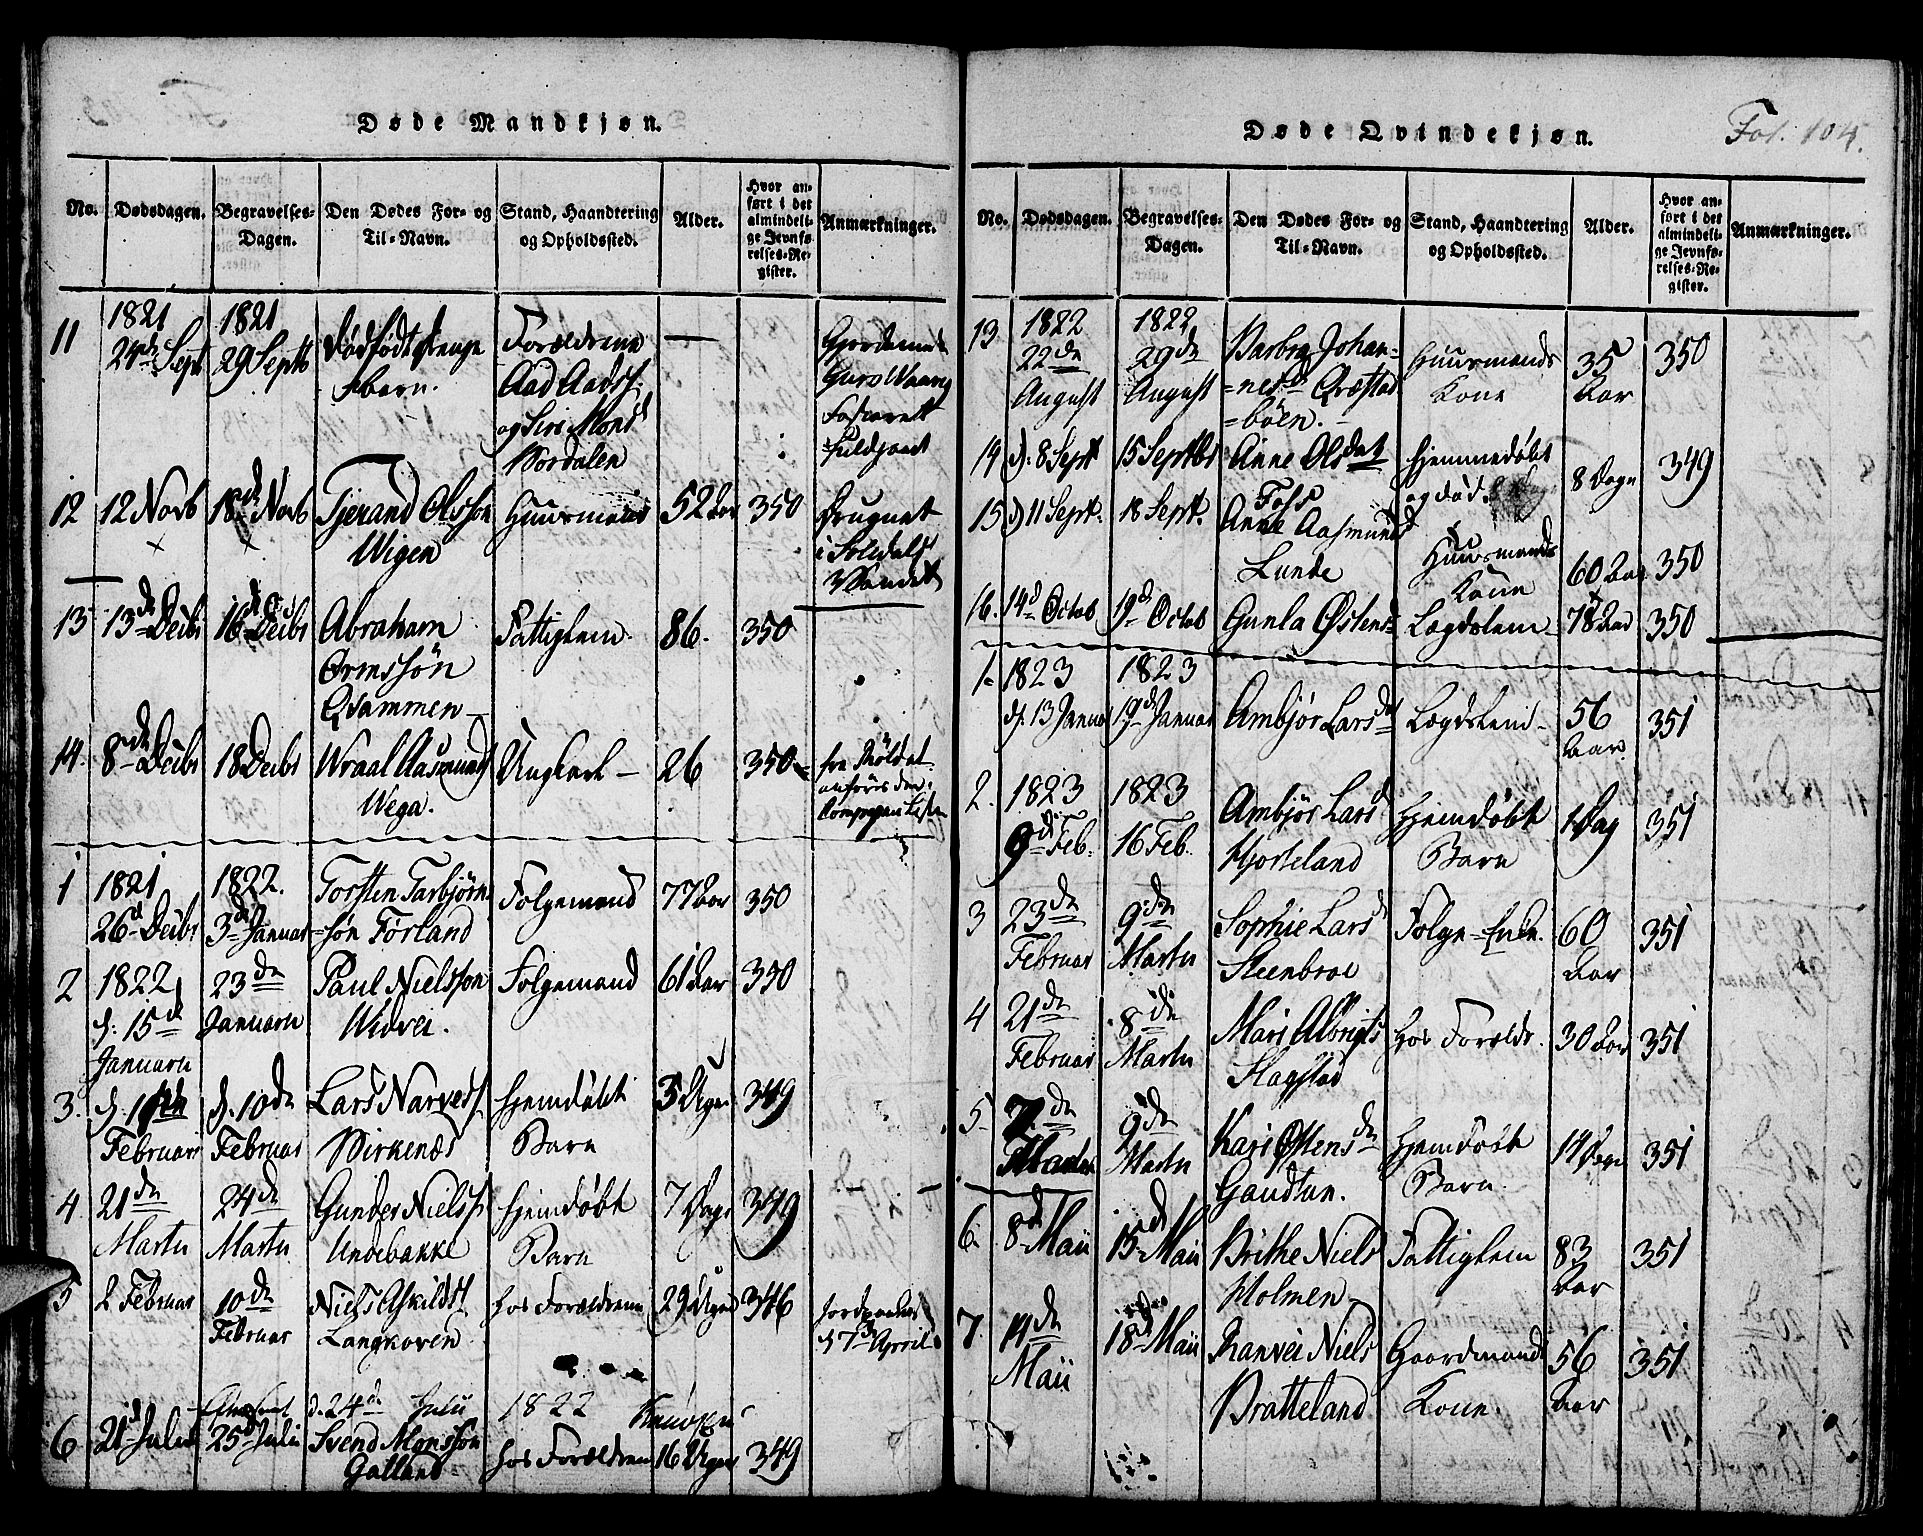 Døde Mandkjøn.
No.
Dødsdagen.
Begravelses-
Dagen.
Den Dødes For- og
Til-Navn.
Stand, Haandtering
og Opholdssted.
Alder.
Hvor an-
ført i det
almindeli-
ge Jevnfø-
relses-Re-
gister.
Anmærkninger.
11
1821
24de Sept
1821
29 Septb
Dødfødt drenge
barn.
Forældrene
Aad Aads.
og Siri Monsd
Nordalen
12
12 Novb
18de Novb
Tjerand Olsson
Wigen
Huusmand
52 Aar
350
Drugnet
i Soldals
Vandet
13
13de Decbr
16de Decbr
Abraham
Ormssøn
Qvammen
Fattiglem
86.
350
14.
8de Decbr
18 Decbr
Wraal Aasmunds
Wega.
Ungkarl
26
350
fra Røldal
anføris den
1
1821
26d Decbr
1822.
3de Januar
Torsten Tarbjørn-
søn Førland
Folgemand
77 Aar
350
2
1822
d. 15de
Januarii
23de
Januarii
Paul Nielsson
Widvei.
Folgemand
61 Aar
350
3.
Februar
d. 10de
Februar
Lars Narves
Birkenæs
Hjemdøbt
Barn
3 Uger
349
4
21de
Martii
24de
Martii
Gunder Nielss
Undebakke
Hjemdøbt
Barn
7 Dage
349
5
2 Februar
10de
Februar
Niels Askilds
Langkoven
hos Forældrene
29 Uger
346
d 7de April
d. 24de Julii 1822
6
21d Julii
25d Julii
Svend Monsson
Galland
hos Forældrene
16 Uger
349
Døde Qvindekjøn.
Fol. 104.
No.
Dødsdagen.
Begravelses-
Dagen.
Den Dødes For- og
Til-Navn.
Stand, Haandtering
og Opholdssted.
Alder.
Hvor an-
ført i det
almindeli-
ge Jevnfø-
relses-Re-
gister.
Anmærkninger.
13
1822
22de
August
1822
29de
August
Barbra Johan-
=nesd Qvæstad
=bøen.
Huusmands
Kone
35
Aar
350
14
d. 8 Sept
15 Septbr
Anne Olsdat
Foss
Hjemmedøbt
og død.
8 Dage
349
15
d 11 Sept.
18 Sept.
Anne Aasmunds
Lunde
Huusmands
Kone
60 Aar
350
16.
14d Octob
19d Octob
Gunla Østens
Lægdslem
78 Aar
350
1.
1823
d. 13 Januar
1823
19d Januar
Ambjør Larsd
Lægdslem
56
Aar
351
2.
1823
9d Feb.
1823
16 Feb.
Ambjør Larsd
Hjorteland
Hjemdøbt
Barn
1 Dag
351
3
23de
Februar
9de
Martii
Sophie Larsd
Steenbroe
Folge-Enke.
60
Aar
351
4
21de
Februar
8de
Martii
Mari Albrigts
Slagstad
hos Forældr.
30 Aar
351
5
7de
Martii
9de
Martii
Kari Østensda
Gaudtun.
Hjemdøbt
Barn.
14 Dage
351
6.
8d Maii
15d Maii
Brithe Niels
Holmen
Fattiglem
83
Aar
351
7.
14de
Maii
18d Maii
Ranvei Niels
Bratteland
Gaardmands
Kone.
56
Aar
351